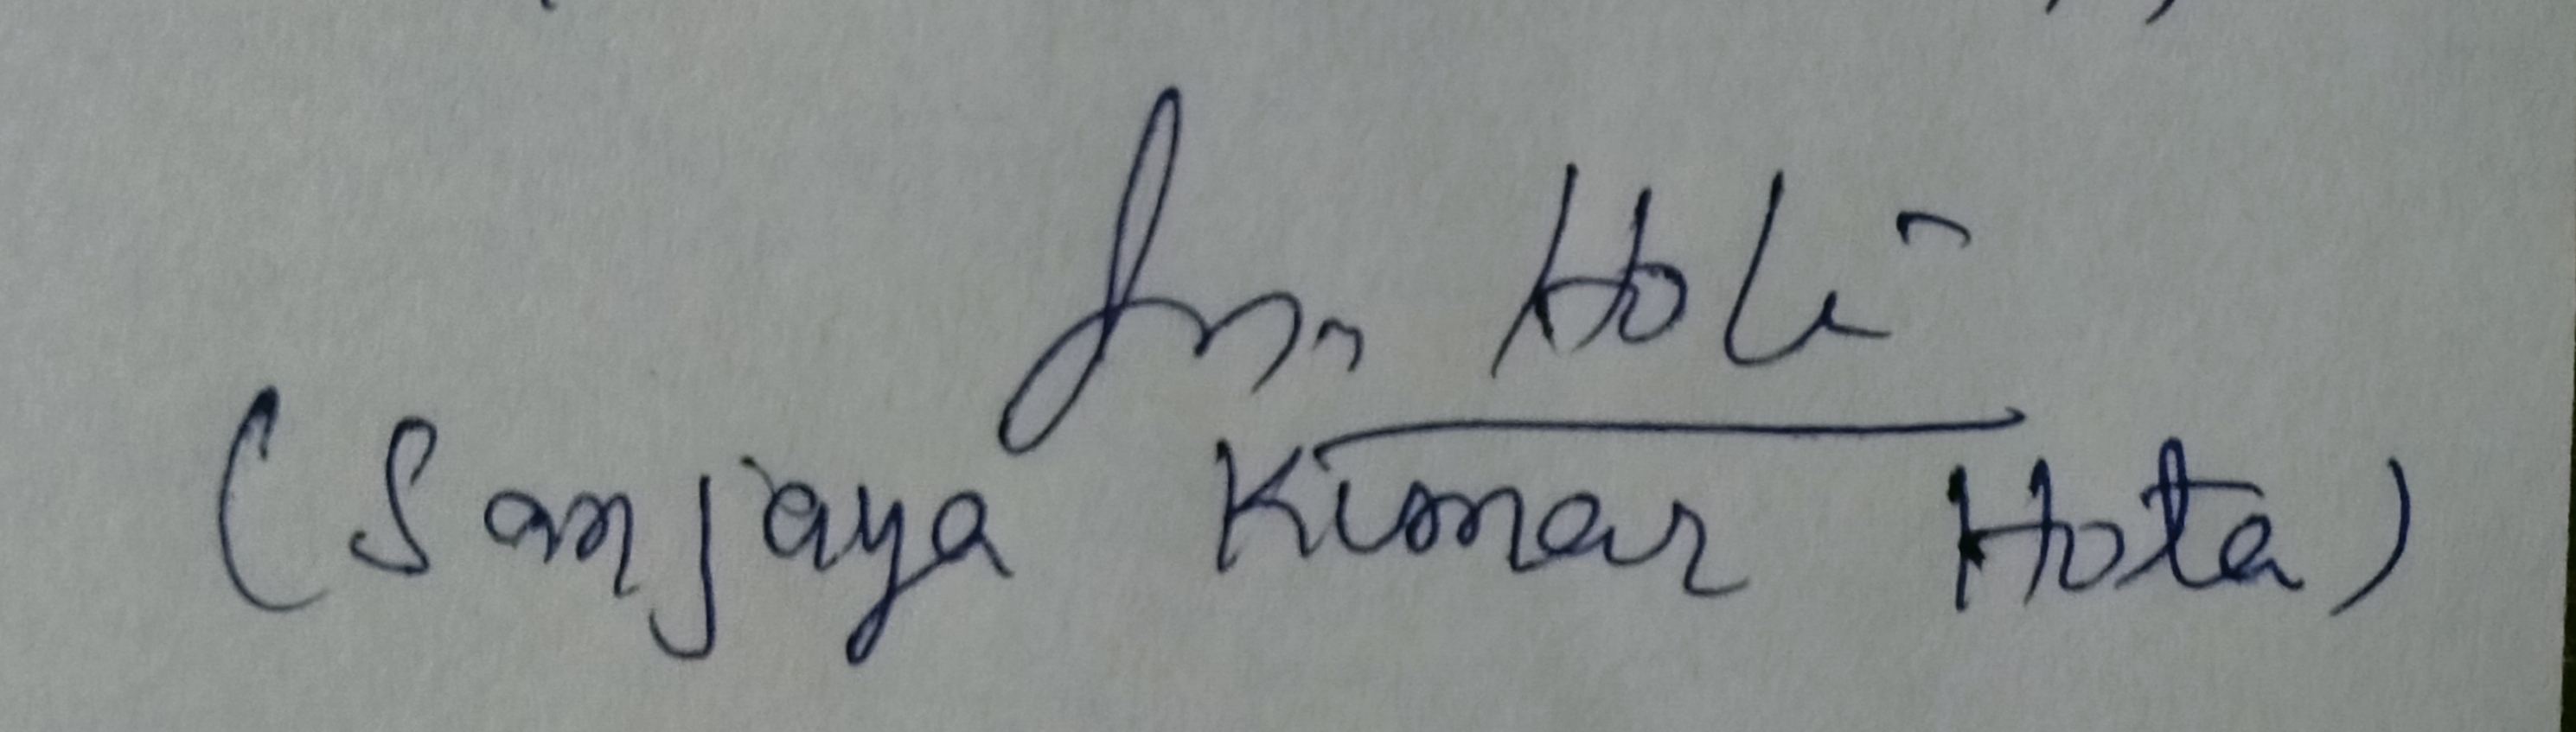 Hota
(Sanjaya Kumar Hota)